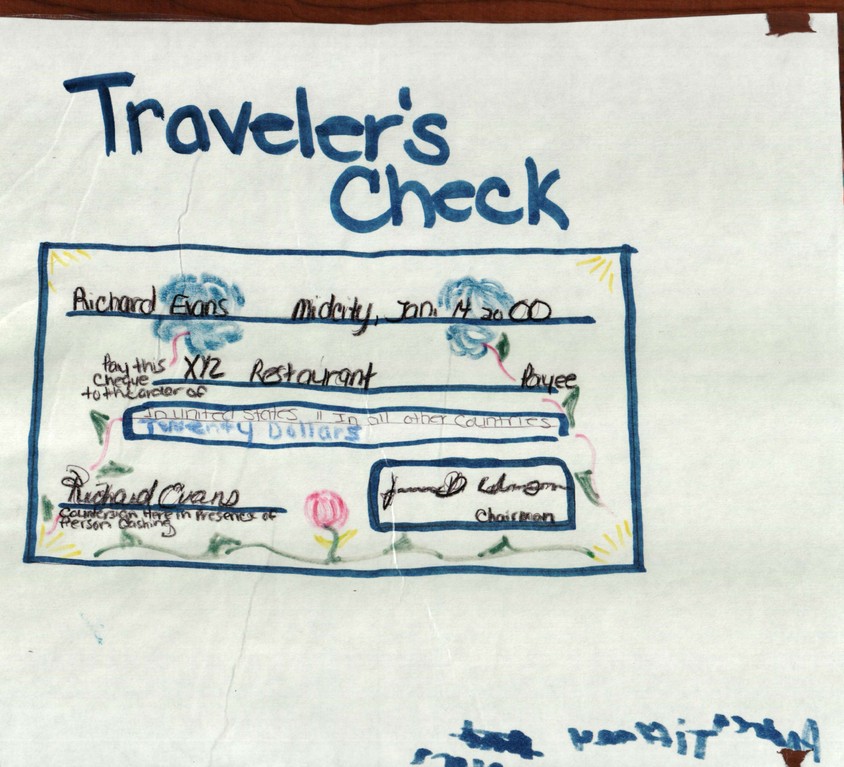 Traveler's
Check
Richard Evans Midcity, Jan. 14 20 00
Pay this
cheque
to the order of
XYZ Restaurant Payee
In united states " In all other countries
Twenty Dollars
Richard Evans
Countersign Here in Presence of
Person Cashing
Chairman